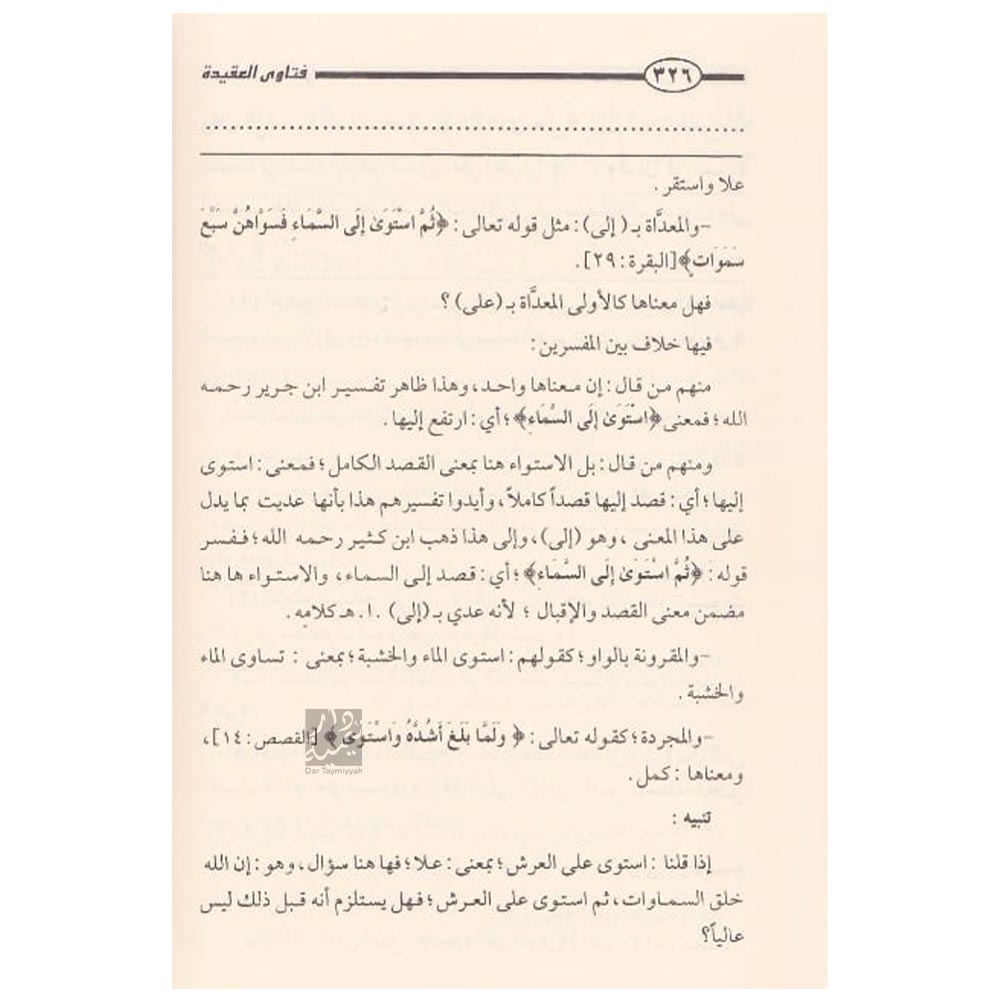 ٣٢٦ فتاوى العقيدة
علا واستقر .
-والمعدَّاة بـ ( إلى) : مثل قوله تعالى : ﴿ثُمَّ اسْتَوَىٰ إِلَى السَّمَاءِ فَسَوَّاهُنَّ سَبْعَ
سَمَوَاتٍ﴾[البقرة : ٢٩] .
فهل معناها كالأولى المعدَّاة بـ (على) ؟
فيها خلاف بين المفسرين :
منهم من قال : إن معناها واحد ، وهذا ظاهر تفسير ابن جرير رحمه
الله ؛ فمعنى ﴿اسْتَوَىٰ إِلَى السَّمَاءِ﴾ ؛ أي : ارتفع إليها .
ومنهم من قال : بل الاستواء هنا بمعنى القصد الكامل ؛ فمعنى : استوى
إليها ؛ أي : قصد إليها قصداً كاملاً ، وأيدوا تفسيرهم هذا بأنها عديت بما يدل
على هذا المعنى ، وهو (إلى) ، وإلى هذا ذهب ابن كثير رحمه الله ؛ ففسر
قوله : ﴿ثُمَّ اسْتَوَىٰ إِلَى السَّمَاءِ﴾ ؛ أي : قصد إلى السماء ، والاستواء ها هنا
مضمن معنى القصد والإقبال ؛ لأنه عدي بـ (إلى) . ا. هـ كلامه .
-والمقرونة بالواو ؛ كقولهم : استوى الماء والخشبة ؛ بمعنى : تساوى الماء
والخشبة .
-والمجردة ؛ كقوله تعالى : ﴿ وَلَمَّا بَلَغَ أَشُدَّهُ وَاسْتَوَىٰ ﴾ [القصص : ١٤] ،
ومعناها : كمل .
Dar Taymiyyah
تنبيه :
إذا قلنا : استوى على العرش ؛ بمعنى : علا ؛ فها هنا سؤال ، وهو : إن الله
خلق السماوات ، ثم استوى على العرش ؛ فهل يستلزم أنه قبل ذلك ليس
عالياً؟